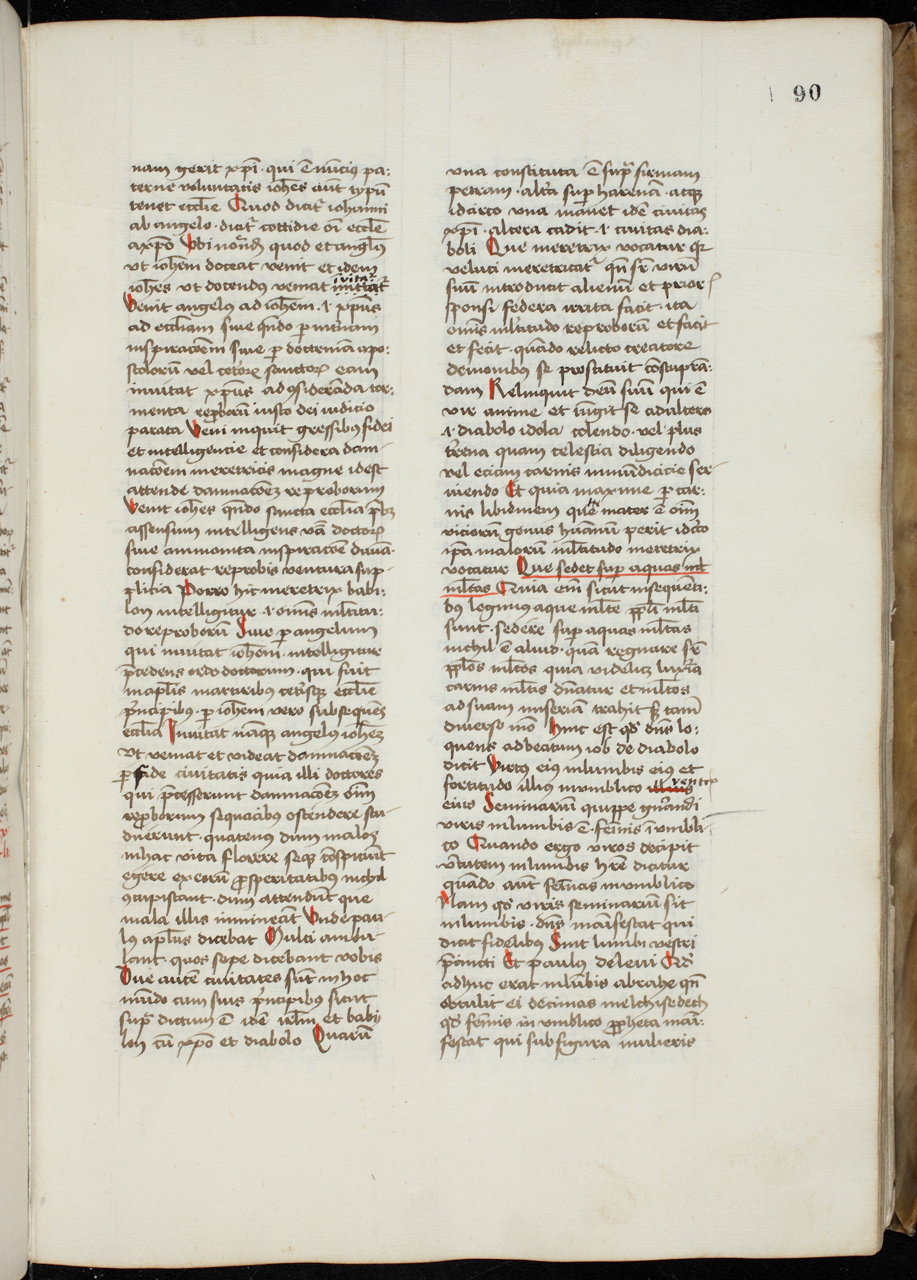 90
nam gerit xpī · qui ē nūcius pa:
terne voluntatis ioh̄es aut̄ typū
tenet eccl̄ie Quod dicit̉ iohanni
ab angelo · dicit̉ cottidie oī eccl̄e
a xp̄o Ubi nōnd̄ quod et angl̄us
ut ioh̄em doceat venit et idem
ioh̄es ut docendus veniat invitat̉
Venit angelus ad ioh̄em · i · xp̄ūs
ad eccl̄iam siue qn̄do p
inspiracōem siue p doctrinā apo:
stolorū vel ceteroꝝ sanctoꝝ eam
inuitat xp̄ūs ad ꝯsideranda tor:
menta reproborū iusto dei iudicio
parata Veni inquit gressibus fidei
et intelligencie et considera dam-
nacōem meretricis magne idest
attende damnacōeꝫ reproborum
Venit ioh̄es qn̄do sancta eccl̄ia p̄bꝫ
assensum intelligens vā doctoꝝ
siue ammonita inspiracōe diuīa ·
considerat reprobis ventura sup-
plicia Porro hic meretrix babi:
lon intelligitur · i · om̄is ml̄titu:
do reproborū Siue p angelum
qui inuitat ioh̄em · intelligitur
p̄cedens ordo doctorum · qui fuit
in apl̄is martiribus ceterisqꝫ eccl̄ie
p̄ncipibus · p ioh̄em vero subsequēs
eccl̄ia Inuitat nāqꝫ angelus ioh̄eꝫ
ut veniat et videat damnacōeꝫ
pfide ciuitatis quia illi doctores
qui p̄cesserunt damnacōeꝫ oīm
reproborum sequacibus ostendere stu-
duerunt · quatenus dum malos
in hac vita florere seqꝫ conspiciūt
egere ex eorū prosperitatibus nichil
ꝯcupiscant · dum attendūt que
mala illis immineāt Unde pau-
lus apl̄us dicebat Multi ambu-
lant · quos sepe dicebant vobis
Due autē ciuitates sūt in hoc
mūdo cum suis p̄ncipibus sicut
sup̉ dictum ē idē irl̄m et babi
lon cū xp̄o et diabolo Quarū
una constituta ē sup̉ firmam
petram · altera sup harenā · atqꝫ
idcirco una manet idē ciuitas
xp̄i · altera cadit · i · ciuitas dia:
boli Que meretrix vocatur qꝛ
veluti meretricat̉ qn̄ sr̄ virū
suū introducit alienū et prior
sponsi federa irrita facit · ita
om̄is ml̄titudo reproborū et facit
et fecit · quādo relicto creatore
demonibus se prostituit constuprā:
dam Relinquit deū suū qui ē
vir anime et iūgit se adultero
· i · diabolo idola colendo · vel plus
t̉rena quam celestia diligendo
vel eciam carnis inmūdicicie ser-
uiendo Et quia maxime p car:
nis libidinem que mater ē oīm
viciorū genus hūanū perit idc̉co
ip̄a malorū ml̄titudo meretrix
vocatur Que sedet sup aquas ml̄
ml̄tas Quia eī sicut in sequenti:
bus legimus aque ml̄te pp̄li ml̄ti
sunt · sedere sup aquas ml̄tas
nichil ē aliud · quā regnare sr̄
pp̄los ml̄tos quia videlicꝫ luxīa
carnis ml̄tis dn̄atur et ml̄tos
ad suam miseriā trahit ꝫ tam̄
diuerso mō Hinc est qd̄ dn̄s lo:
quens ad beatum iob de diabolo
dicit Virtus eius in lumbis eius et
fortitudo illius in umblico ventris
eius Seminariū quippe gn̄andi
viris in lumbis ē · fem̄is ī umbli-
co Quando ergo viros decipit
v̉tutem in lumbis hr̄e dicitur
quādo aut̄ fem̄as in umblico
Nam qd̄ viris seminariū sit
in lumbis · dn̄s manifestat qui
dicit fidelibus Sint lumbi vestri
p̄cincti Et paulus de leui Qd̄
adhuc erat in lūbis abrahe qn̄
obtulit ei decimas melchisedech
qd̄ fem̄is in umblico propheta mani:
festat qui sub figura mulieris